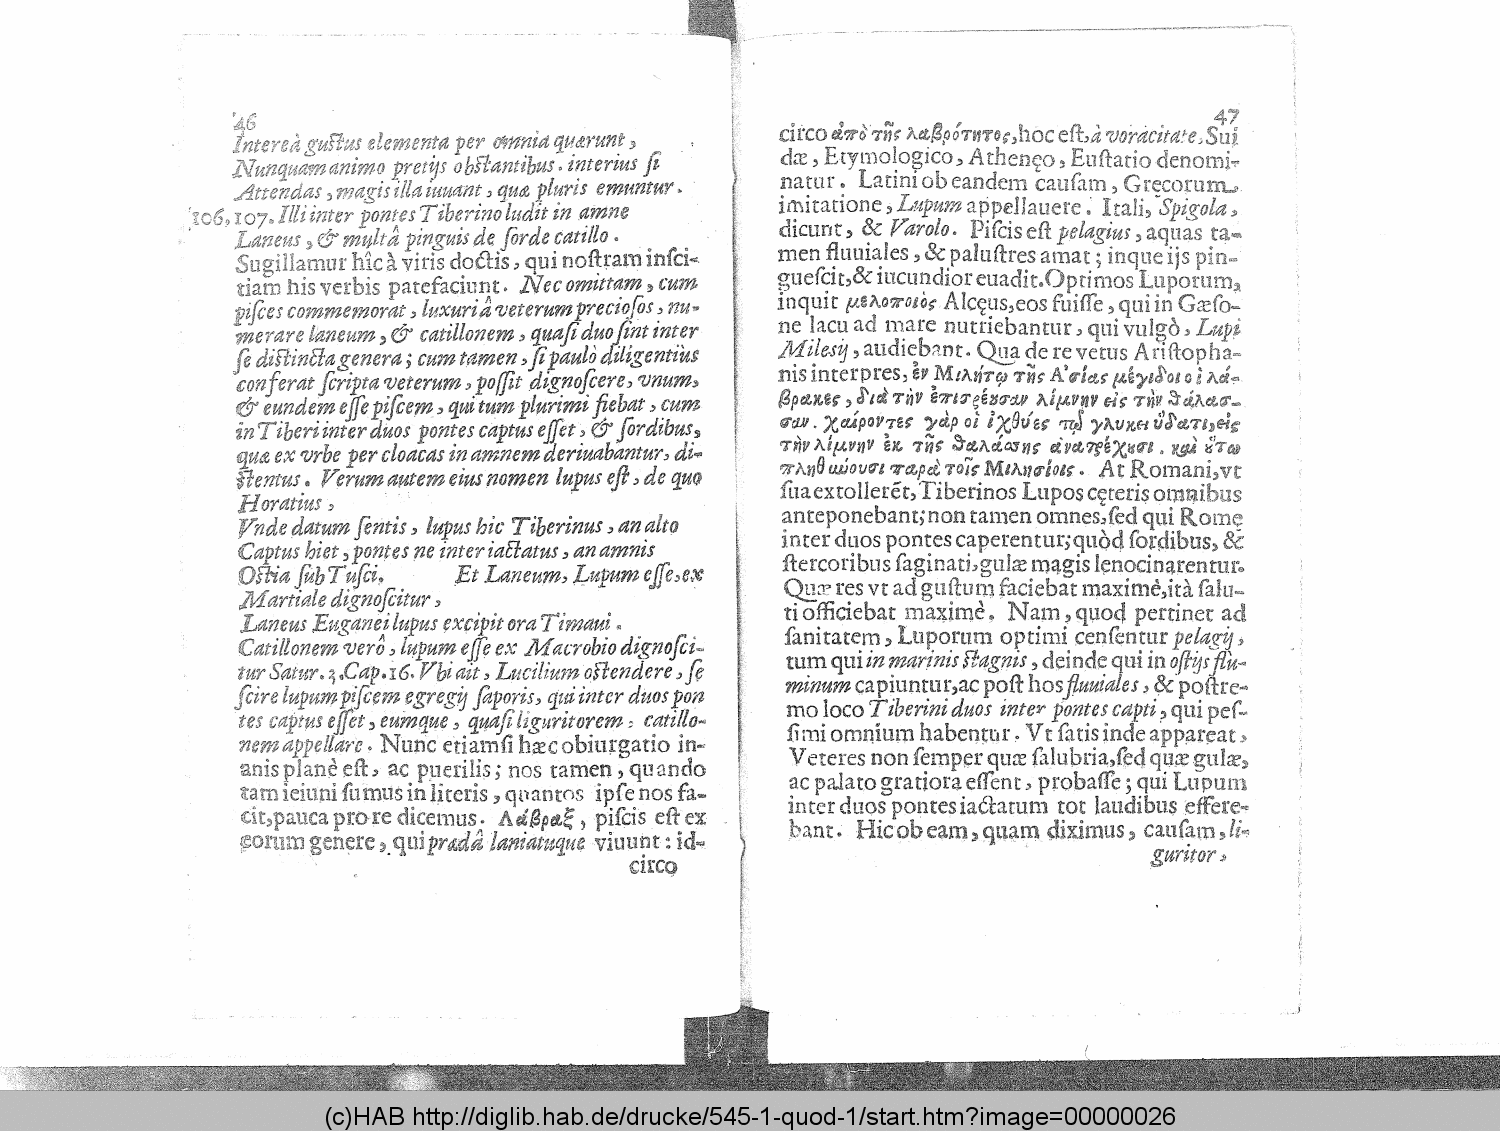 46
Intereà gustus elementa per omnia quærunt,
Nunquam animo pretijs obstantibus. interius si
Attendas, magis illa iuuant, quæ pluris emuntur.
106, 107. Illi inter pontes Tiberino ludit in amne
Laneus, & multâ pinguis de sorde catillo.
Sugillamur hîc à viris doctis, qui nostram insci-
tiam his verbis patefaciunt. Nec omittam, cum
pisces commemorat, luxuriâ veterum preciosos, nu-
merare laneum, & catillonem, quasi duo sint inter
se distincta genera; cum tamen, si paulò diligentiùs
conferat scripta veterum, possit dignoscere, vnum,
& eundem esse piscem, qui tum plurimi fiebat, cum
in Tiberi inter duos pontes captus esset, & sordibus,
quæ ex vrbe per cloacas in amnem deriuabantur, di-
stentus. Verum autem eius nomen lupus est, de quo
Horatius,
Vnde datum sentis, lupus hic Tiberinus, an alto
Captus hiet, pontes ne inter iactatus, an amnis
Ostia sub Tusci. Et Laneum, Lupum esse, ex
Martiale dignoscitur,
Laneus Euganei lupus excipit ora Timaui.
Catillonem verò, lupum esse ex Macrobio dignosci-
tur Satur. 3. Cap. 16. Vbi ait, Lucilium ostendere, se
scire lupum piscem egregij saporis, qui inter duos pon
tes captus esset, eumque, quasi liguritorem, catillo-
nem appellare. Nunc etiamsi hæc obiurgatio in-
anis planè est, ac puerilis; nos tamen, quando
tam ieiuni sumus in literis, quantos ipse nos fa-
cit, pauca pro re dicemus. Λάβραξ, piscis est ex
eorum genere, qui prædâ laniatuque viuunt: id-
circo
47
circo ἀπὸ τῆς λαβρότητος, hoc est, à voracitate, Sui
dæ, Etymologico, Athenęo, Eustatio denomi-
natur. Latini ob eandem causam, Gręcorum
imitatione, Lupum appellauere. Itali, Spigola,
dicunt, & Varolo. Piscis est pelagius, aquas ta-
men fluuiales, & palustres amat; inque ijs pin-
guescit, & iucundior euadit. Optimos Luporum,
inquit μελοποιὸς Alcęus, eos fuisse, qui in Gæso-
ne lacu ad mare nutriebantur, qui vulgò, Lupi
Milesij, audiebant. Qua de re vetus Aristopha-
nis interpres, ἐν Μιλήτῳ τῆς Ἀσίας μέγιδοι οἱ λά-
βρακες, διὰ τὴν ἐπιτρέχουσαν λίμνην εἰς τὴν θάλασ-
σαν. χαίροντες γὰρ οἱ ἰχθύες τῷ γλυκεῖ ὕδατι, εἰς
τὴν λίμνην ἐκ τῆς θαλάσσης ἀνατρέχουσι. καὶ οὕτω
πληθύνουσι παρὰ τοῖς Μιλησίοις. At Romani, vt
sua extollerēt, Tiberinos Lupos cęteris omnibus
anteponebant; non tamen omnes, sed qui Romę
inter duos pontes caperentur; quòd sordibus, &
stercoribus saginati, gulæ magis lenocinarentur.
Quæ res vt ad gustum faciebat maximè, ità salu-
ti officiebat maximè. Nam, quod pertinet ad
sanitatem, Luporum optimi censentur pelagij,
tum qui in marinis stagnis, deinde qui in ostijs flu-
minum capiuntur, ac post hos fluuiales, & postre-
mo loco Tiberini duos inter pontes capti, qui pes-
simi omnium habentur. Vt satis inde appareat,
Veteres non semper quæ salubria, sed quæ gulæ,
ac palato gratiora essent, probasse; qui Lupum
inter duos pontes iactatum tot laudibus effere-
bant. Hic ob eam, quam diximus, causam, li-
guritor,
(c)HAB http://diglib.hab.de/drucke/545-1-quod-1/start.htm?image=00000026